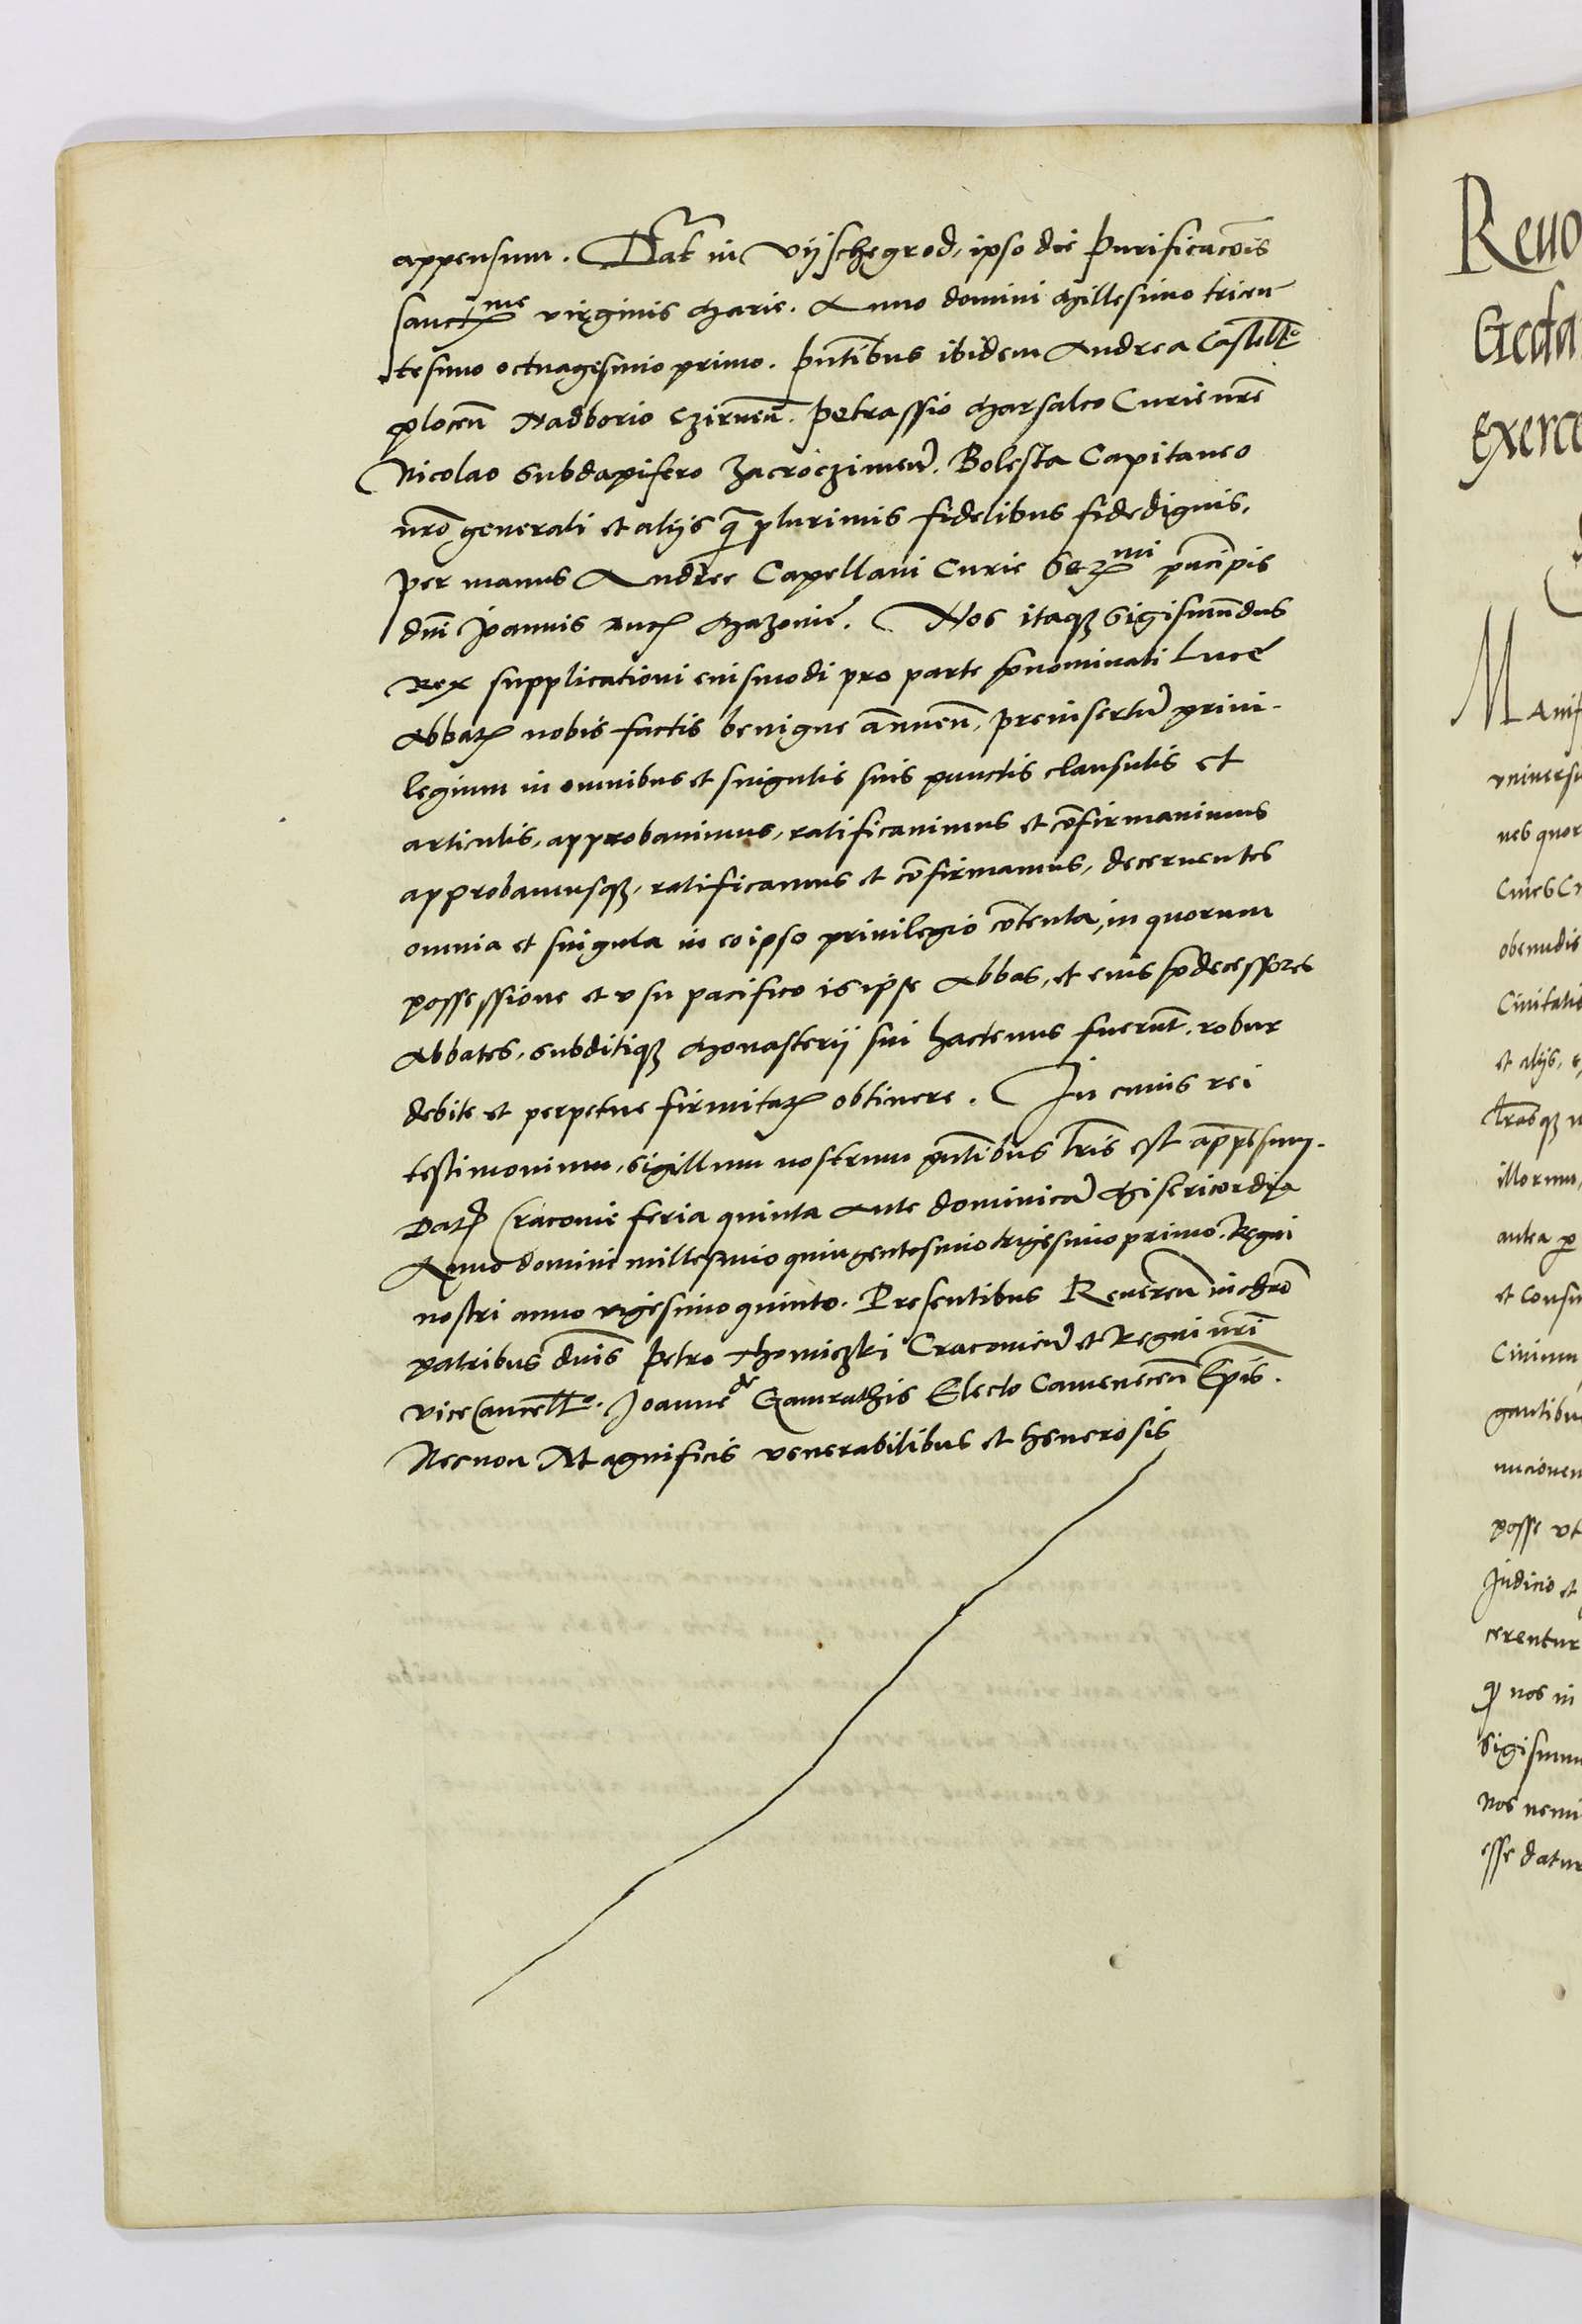 appensum. Dat in Vyschegrod, ipso die Purificacois
sanctme virginis Marie. Anno domini Millesimo tricen
tesimo octuagesimo primo. Pntibus ibidem Andrea Castello
plocen Nadborio Czirnen. Petrassio Marsalco Curie nre
Nicolao Subdapifero Zacroczimen. Bolesta Capitaneo
nro generali et alijs q plurimis fidelibus fidedignis,
per manus Andree Capellani Curie Sermi pncipis
dni Joannis duc Mazovie. Nos itaq Sigismundus
Rex supplicationi euismodi pro parte pnominati Luce
Abbat nobis factis benigne annuen, preinsertu priui-
legium in omnibus et singulis suis punctis clausulis et
articulis, approbauimus, ratificauimus et cofirmauimus
approbamusq, ratificamus et cofirmamus, decernentes
omnia et singula in eo ipso priuilegio cotenta, in quorum
possessione et vsu pacifico is ipse Abbas, et eius pdecessores
Abbates, subditiq Monasterij sui hactenus fuerunt, robur
debite et perpetue firmitat obtinere. In cuius rei
testimonium, sigillum nostrum pntibus lris est appesum.
Dat Craconie feria quinta Ante dominica Misericordia
Anno domini millesimo quingentesimo trigesimo primo. Regni
nostri anno vigesimo quinto. Presentibus Reueren in chro
patribus dnis Petro Thomiczki Cracouien et Regni nri
vice Cancello. Joanne Gamrathis Electo Camenecen Epis.
Necnon Magnificis venerabilibus et Generosis
Reuo
Geda
exerce
Manif
vniuersi
nes quor
Ciues
obenudis
Ciuitatis
et alijs,
lrasq
illorum,
antea
et Consu
Ciuium
gantibu
nucionem
posse vt
Judicio et
cerentur
nos in
Sigismun
nos nemi
esse datur